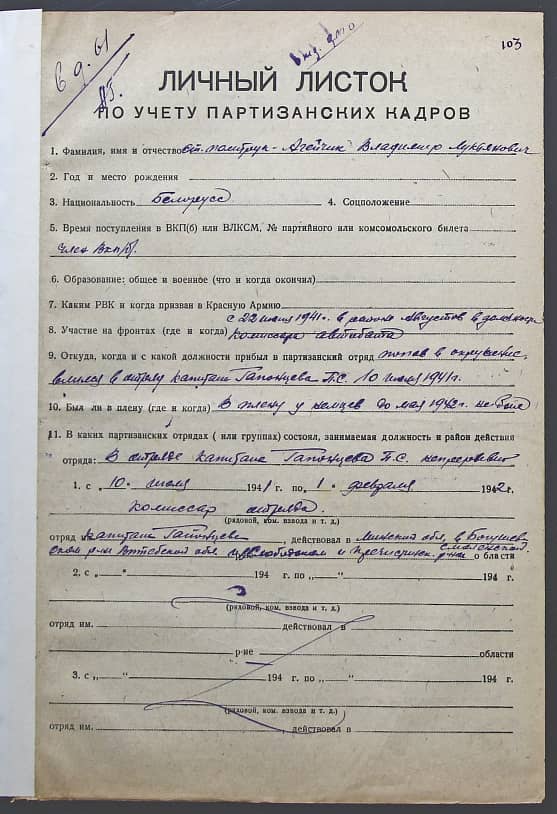 103
6 д. 61
ЛИЧНЫЙ ЛИСТОК
ПО УЧЕТУ ПАРТИЗАНСКИХ КАДРОВ
1. Фамилия, имя и отчество ст. политрук - Агейчик Владимир Лукьянович
2. Год и место рождения
3. Национальность Белорусс 4. Соцположение
5. Время поступления в ВКП(б) или ВЛКСМ, № партийного или комсомольского билета
член ВКП(б).
6. Образование: общее и военное (что и когда окончил)
7. Каким РВК и когда призван в Красную Армию
с 22 июня 1941 г. в районе Августов в должности
8. Участие на фронтах (где и когда) комиссара автобата
9. Откуда, когда и с какой должности прибыл в партизанский отряд попав в окружение
влился в отряд капитана Гапонцева П.С. 10 июля 1941 г.
10. Был ли в плену (где и когда) В плену у немцев до мая 1942 г. не был
11. В каких партизанских отрядах ( или группах) состоял, занимаемая должность и район действия
отряда: В отряде капитана Гапонцева П.С. непрерывно
1. с „10" июля 1941 г. по „1" февраля 1942 г.
комиссар отряда
(рядовой, ком. взвода и т. д.)
отряд капитана Гапонцева, действовал в Минской обл, в Богушев-
ском р-не Витебской обл. и Слободском и Пречистинск. р-нах Смоленской области
2. с „ " 194 г. по „ " 194 г.
(рядовой, ком. взвода и т. д.)
отряд им. действовал в
р-не области
3. с „ " 194 г. по „ " 194 г.
(рядовой, ком. взвода и т. д.)
отряд им. , действовал в